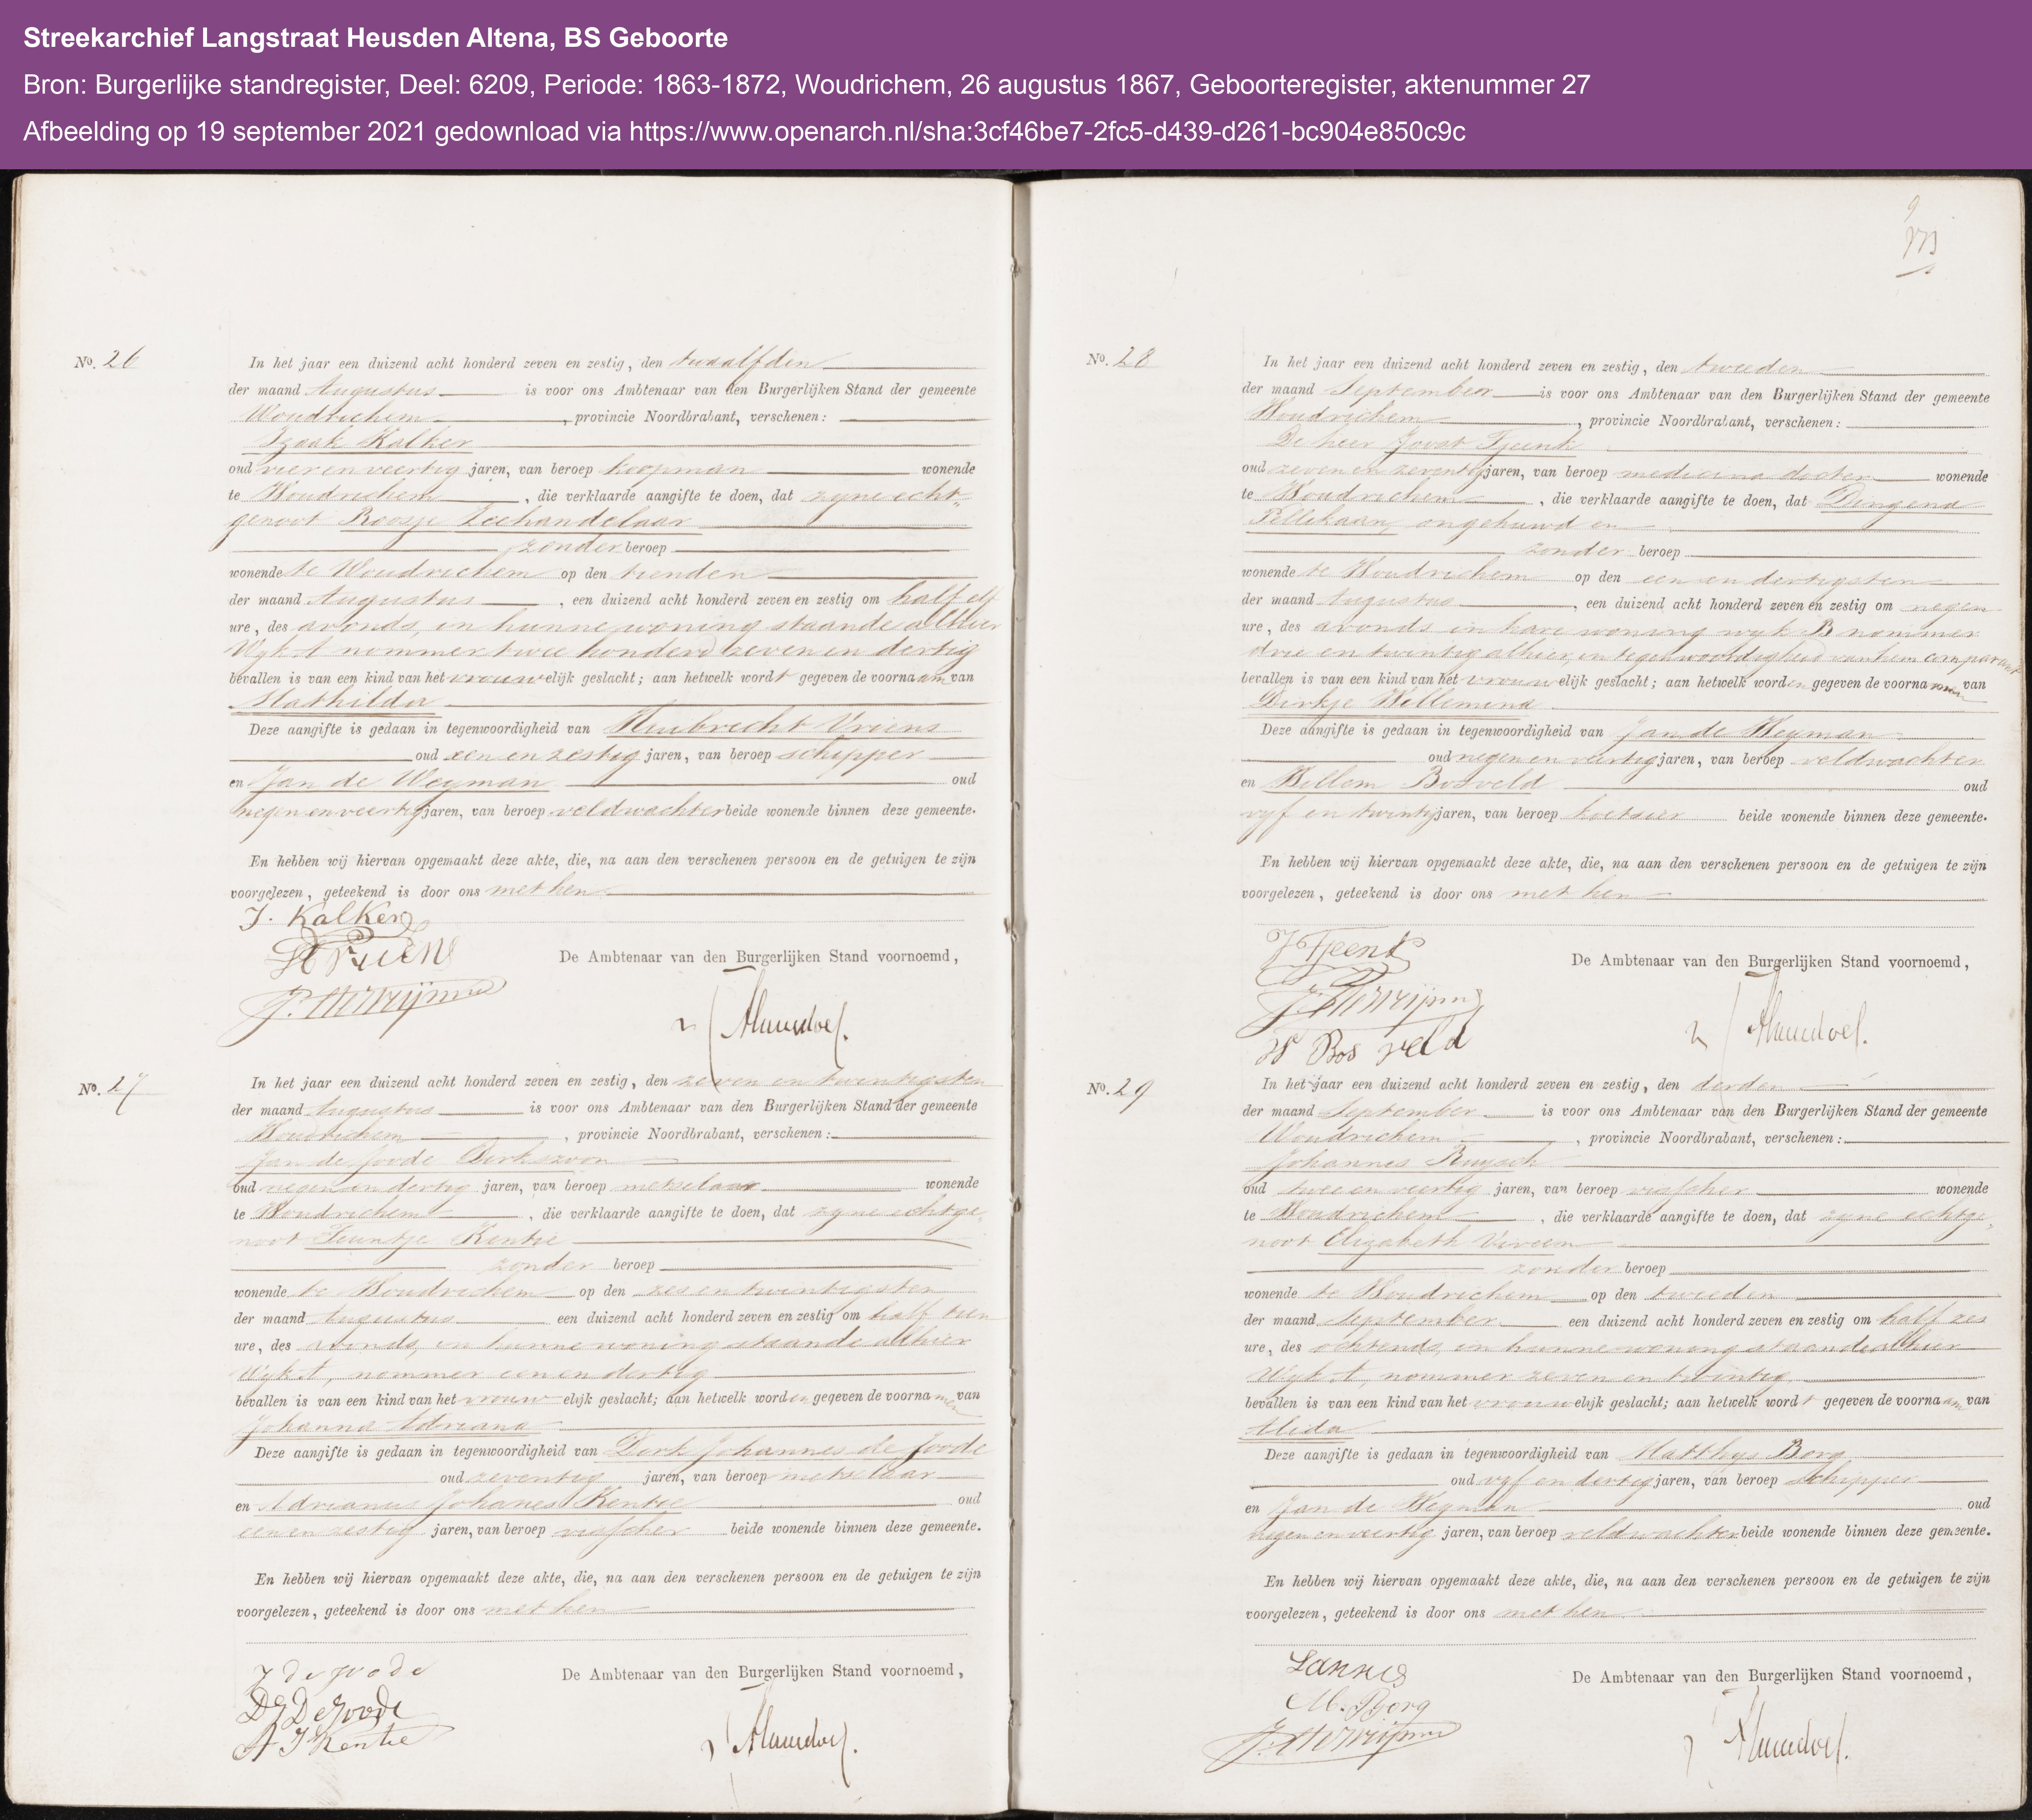 Streekarchief Langstraat Heusden Altena, BS Geboorte
Bron: Burgerlijke standregister, Deel: 6209, Periode: 1863-1872, Woudrichem, 26 augustus 1867, Geboorteregister, aktenummer 27
Afbeelding op 19 september 2021 gedownload via https://www.openarch.nl/sha:3cf46be7-2fc5-d439-d261-bc904e850c9c
No. 26
In het jaar een duizend acht honderd zeven en zestig, den twaalfden
der maand Augustus is voor ons Ambtenaar van den Burgerlijken Stand der gemeente
Woudrichem, provincie Noordbrabant, verschenen:
Izaak Kalker
oud vier en veertig jaren, van beroep koopman wonende
te Woudrichem, die verklaarde aangifte te doen, dat zyne echt-
genoot Roosje Zeehandelaar
zonder beroep
wonende te Woudrichem op den tienden
der maand Augustus, een duizend acht honderd zeven en zestig om half elf
ure, des avonds, in hunne woning staande alhier
Wyk A nommer twee honderd zeven en dertig
bevallen is van een kind van het vrouwelijk geslacht; aan hetwelk wordt gegeven de voornaam van
Mathilda
Deze aangifte is gedaan in tegenwoordigheid van Huibrecht Vriens
oud een en zestig jaren, van beroep schipper
en Jan de Weyman oud
negen en veertig jaren, van beroep veldwachter beide wonende binnen deze gemeente.
En hebben wij hiervan opgemaakt deze akte, die, na aan den verschenen persoon en de getuigen te zijn
voorgelezen, geteekend is door ons met hen.
J. Kalker
De Ambtenaar van den Burgerlijken Stand voornoemd,
No. 27
In het jaar een duizend acht honderd zeven en zestig, den zeven en twintigsten
der maand Augustus is voor ons Ambtenaar van den Burgerlijken Stand der gemeente
Woudrichem, provincie Noordbrabant, verschenen:
Jan de Joode Dirkszoon
oud negen en dertig jaren, van beroep metselaar wonende
te Woudrichem, die verklaarde aangifte te doen, dat zyne echtge-
noot Teuntje Kentie
zonder beroep
wonende te Woudrichem op den zes en twintigsten
der maand Augustus een duizend acht honderd zeven en zestig om half tien
ure, des avonds, in hunne woning staande alhier
Wyk A, nommer een en dertig
bevallen is van een kind van het vrouwelijk geslacht; aan hetwelk worden gegeven de voornamen van
Johanna Adriana
Deze aangifte is gedaan in tegenwoordigheid van Dirk Johannes de Joode
oud zeventig jaren, van beroep metselaar
en Adrianus Johanes Kentie oud
een en zestig jaren, van beroep visscher beide wonende binnen deze gemeente.
En hebben wij hiervan opgemaakt deze akte, die, na aan den verschenen persoon en de getuigen te zijn
voorgelezen, geteekend is door ons met hen
J de joode
De Ambtenaar van den Burgerlijken Stand voornoemd,
DJ De Joode
A J Kentie
No. 28
In het jaar een duizend acht honderd zeven en zestig, den tweeden
der maand September is voor ons Ambtenaar van den Burgerlijken Stand der gemeente
Woudrichem, provincie Noordbrabant, verschenen:
De heer Joost Tjeenk
oud zeven en zeventig jaren, van beroep medicina doctor wonende
te Woudrichem, die verklaarde aangifte te doen, dat Dingena
Pellikaan, ongehuwd en
zonder beroep
wonende te Woudrichem op den een en dertigsten
der maand Augustus, een duizend acht honderd zeven en zestig om negen
ure, des avonds in hare woning wyk B nommer
drie en twintig alhier, in tegenwoordigheid van hem comparant
bevallen is van een kind van het vrouwelijk geslacht; aan hetwelk worden gegeven de voornamen van
Dirkje Willemina
Deze aangifte is gedaan in tegenwoordigheid van Jan de Weyman
oud negen en veertig jaren, van beroep veldwachter
en Willem Bosveld oud
vyf en twintig jaren, van beroep koetsier beide wonende binnen deze gemeente.
En hebben wij hiervan opgemaakt deze akte, die, na aan den verschenen persoon en de getuigen te zijn
voorgelezen, geteekend is door ons met hen
J Tjeenk
De Ambtenaar van den Burgerlijken Stand voornoemd,
W Bosveld
No. 29
In het jaar een duizend acht honderd zeven en zestig, den derden
der maand September is voor ons Ambtenaar van den Burgerlijken Stand der gemeente
Woudrichem, provincie Noordbrabant, verschenen:
Johannes Ruysch
oud twee en veertig jaren, van beroep visscher wonende
te Woudrichem, die verklaarde aangifte te doen, dat zyne echtge-
noot Elizabeth
zonder beroep
wonende te Woudrichem op den tweeden
der maand September een duizend acht honderd zeven en zestig om half zes
ure, des ochtends, in hunne woning staande alhier
Wyk A, nommer zeven en twintig
bevallen is van een kind van het vrouwelijk geslacht; aan hetwelk wordt gegeven de voornaam van
Alida
Deze aangifte is gedaan in tegenwoordigheid van Matthys Borg
oud vyf en dertig jaren, van beroep schipper
en Jan de Weyman oud
negen en veertig jaren, van beroep veldwachter beide wonende binnen deze gemeente.
En hebben wij hiervan opgemaakt deze akte, die, na aan den verschenen persoon en de getuigen te zijn
voorgelezen, geteekend is door ons met hen
De Ambtenaar van den Burgerlijken Stand voornoemd,
M. Borg